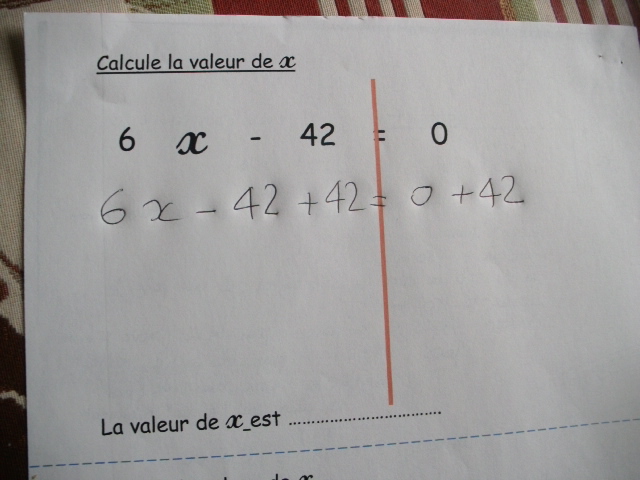 Calcule la valeur de x
6 x - 42 = 0
6 x - 42 + 42 = 0 + 42
La valeur de x_est ..................................